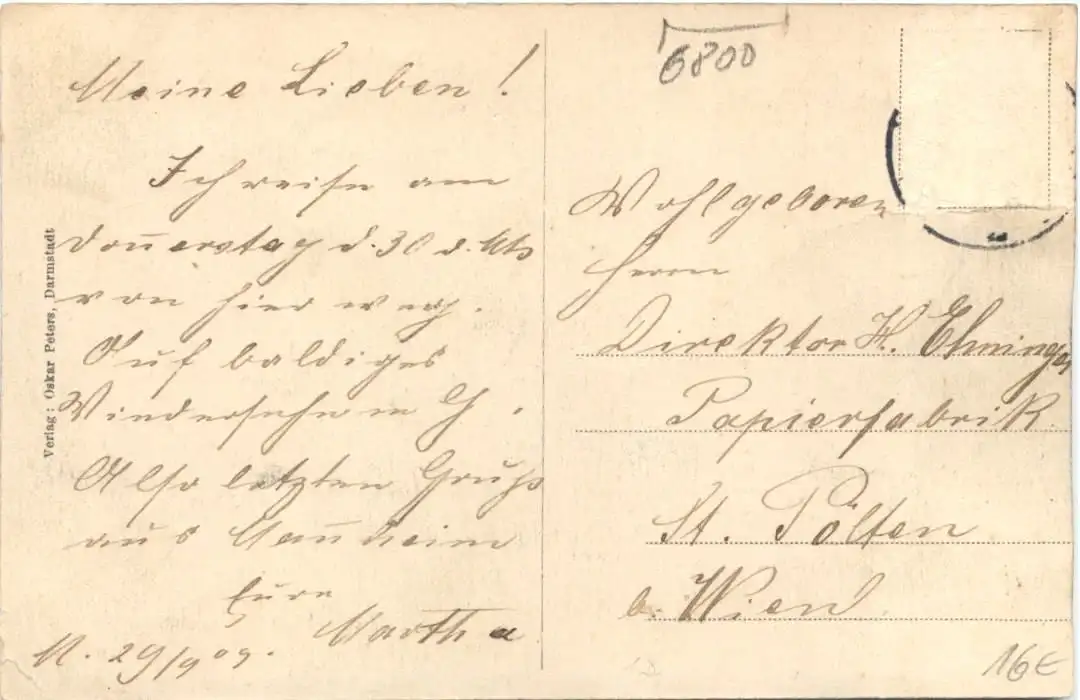 Meine Lieben!
Ich reise am
Donnerstag d. 30 d. Mts
von hier weg.
Auf baldiges
Wiedersehen
Also letzten Gruß
aus Mannheim
Eure
Martha
M. 29/9 09.
Verlag: Oskar Peters, Darmstadt
6800
Wohlgeboren
Herrn
Direktor H.
Papierfabrik
St. Pölten
b. Wien
16€